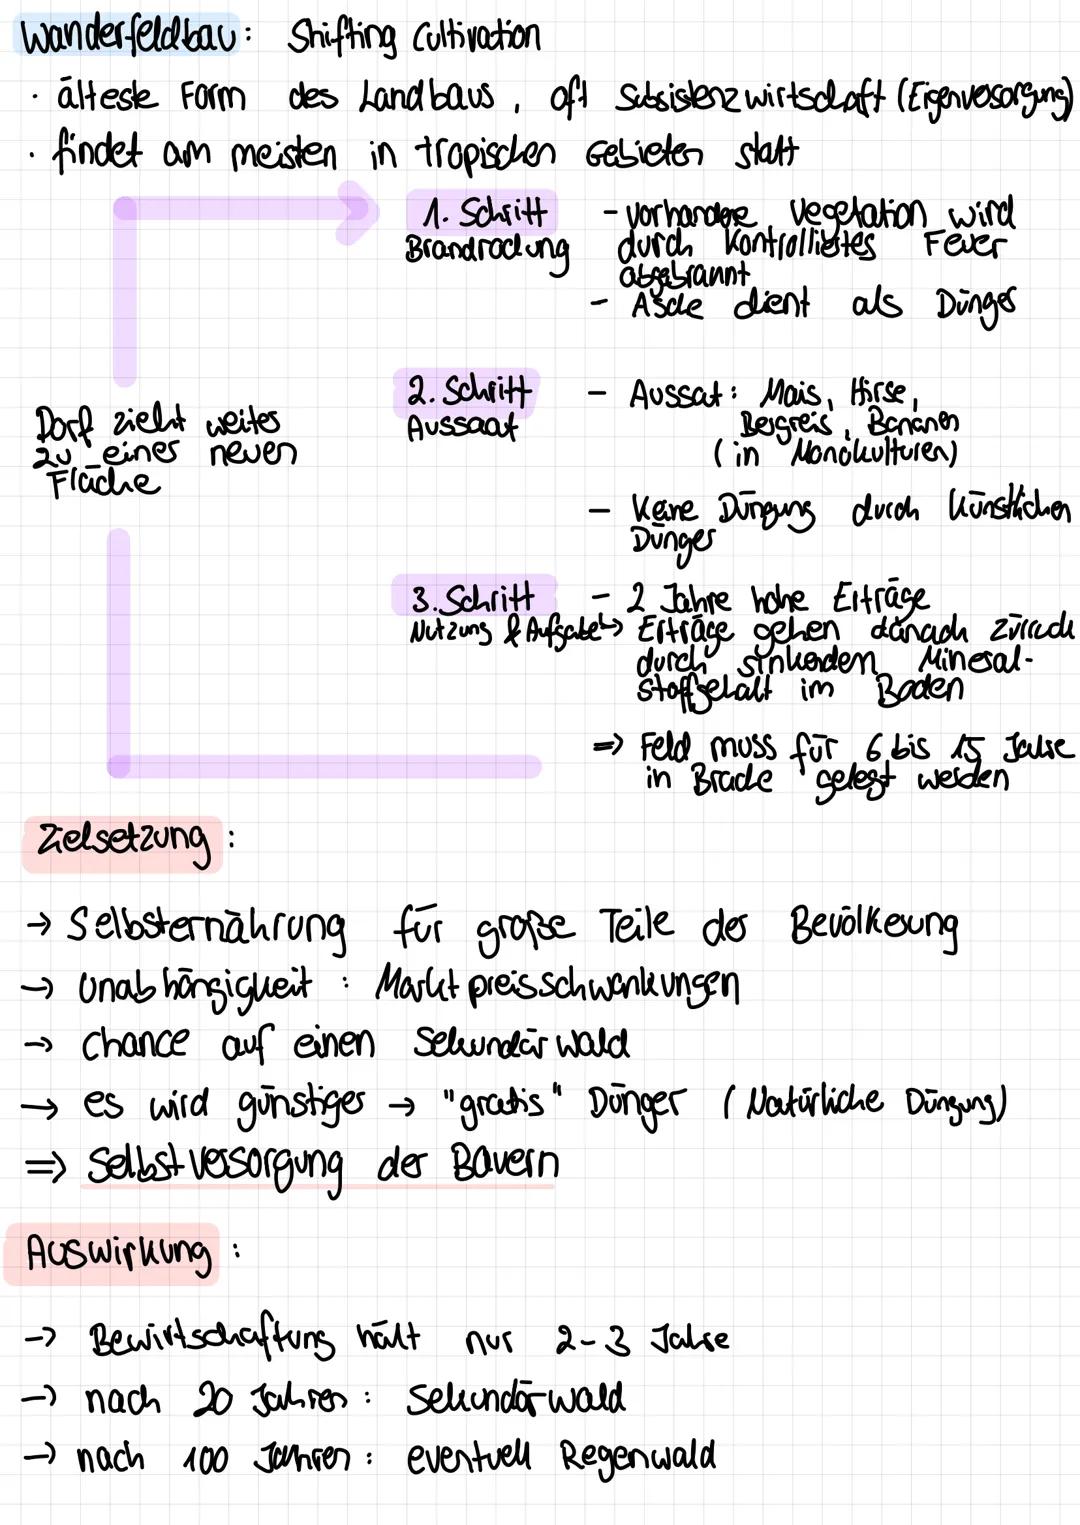 Wanderfeldbau: Shifting Cultivation
· älteste Form des Landbaus, oft Subsistenzwirtschaft (Eigenversorgung)
· findet am meisten in tropischen Gebieten statt
1. Schritt
Brandrodung
- vorhandene Vegetation wird
durch kontrolliertes Feuer
abgebrannt
- Asche dient als Dünger
2. Schritt
Aussaat
- Aussat: Mais, Hirse,
Bergreis, Bananen
(in Monokulturen)
- Keine Düngung durch künstlichen
Dünger
Dorf zieht weiter
zu einer neuen
Fläche
3. Schritt
Nutzung & Aufgabe
- 2 Jahre hohe Erträge
↳ Erträge gehen danach zurück
durch sinkenden Mineral-
stoffgehalt im Boden
=> Feld muss für 6 bis 15 Jahre
in Brache gelegt werden
Zielsetzung:
→ Selbsternährung für große Teile der Bevölkerung
→ Unabhängigkeit: Marktpreisschwankungen
→ Chance auf einen Sekundärwald
→ es wird günstiger → "gratis" Dünger (Natürliche Düngung)
=> Selbstversorgung der Bauern
Auswirkung:
→ Bewirtschaftung hält nur 2-3 Jahre
→ nach 20 Jahren: Sekundärwald
→ nach 100 Jahren: eventuell Regenwald